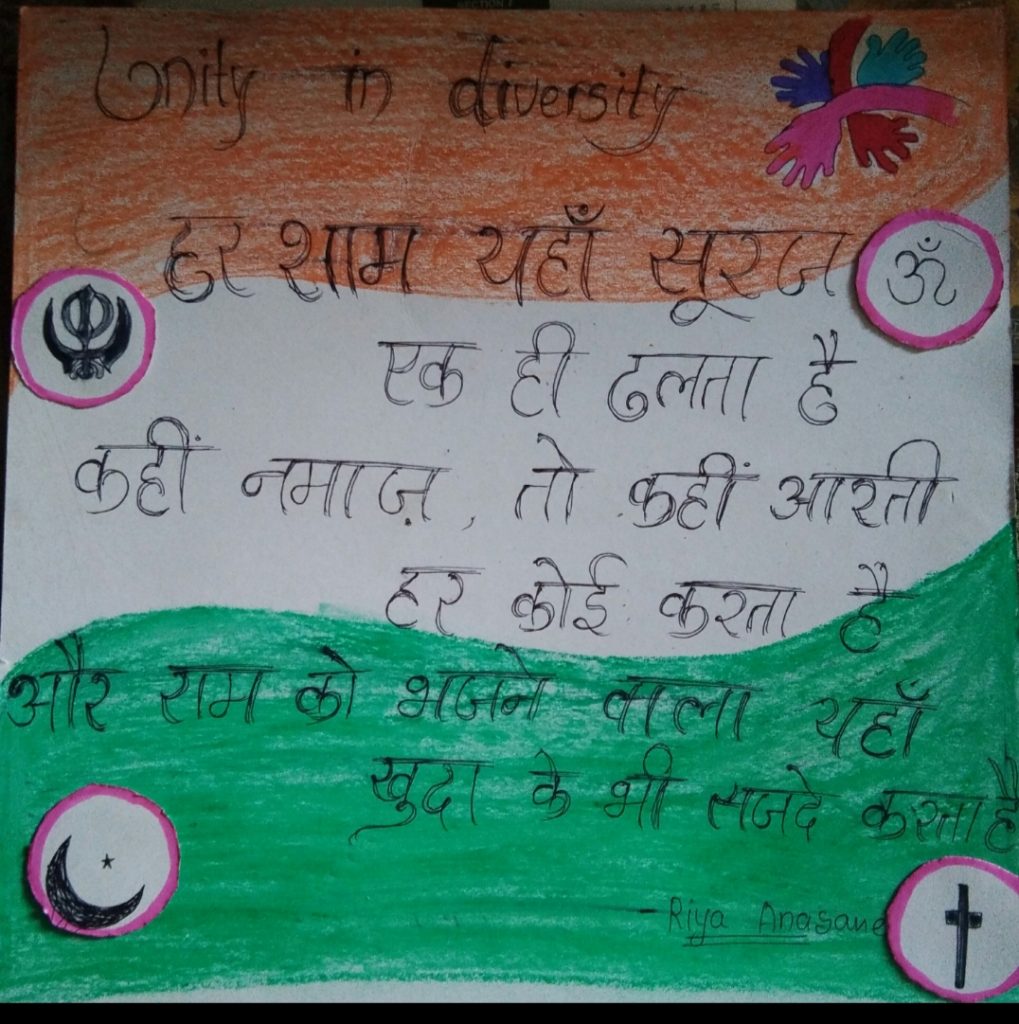 Unity in diversity
हर शाम यहाँ सूरज
ॐ
एक ही ढलता है
कहीं नमाज़, तो कहीं आरती
हर कोई करता है
और राम को भजने वाला यहाँ
खुदा के भी सजदे करता है
- Riya Anasane